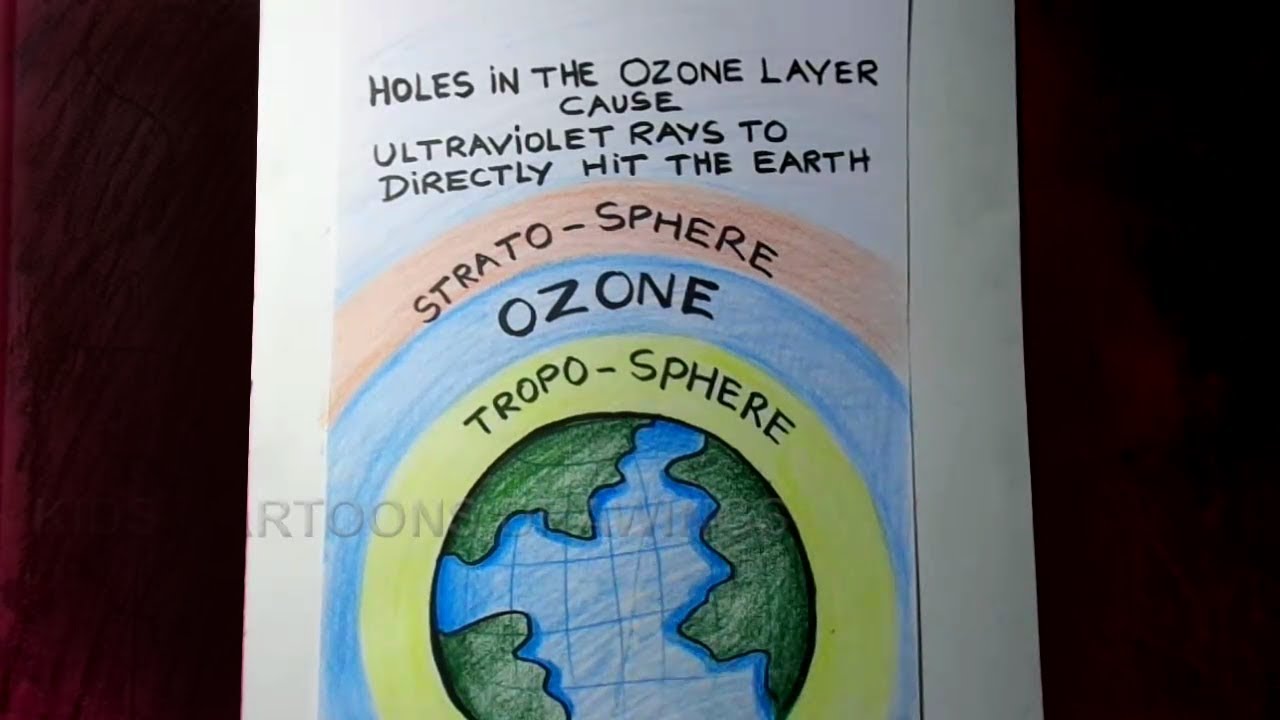 HOLES iN THE OZONE LAYER
CAUSE
ULTRAViOLET RAYS TO
DiRECTLY HiT THE EARTH
STRATO-SPHERE
OZONE
TROPO-SPHERE
KIDS CARTOONS DRAWINGS